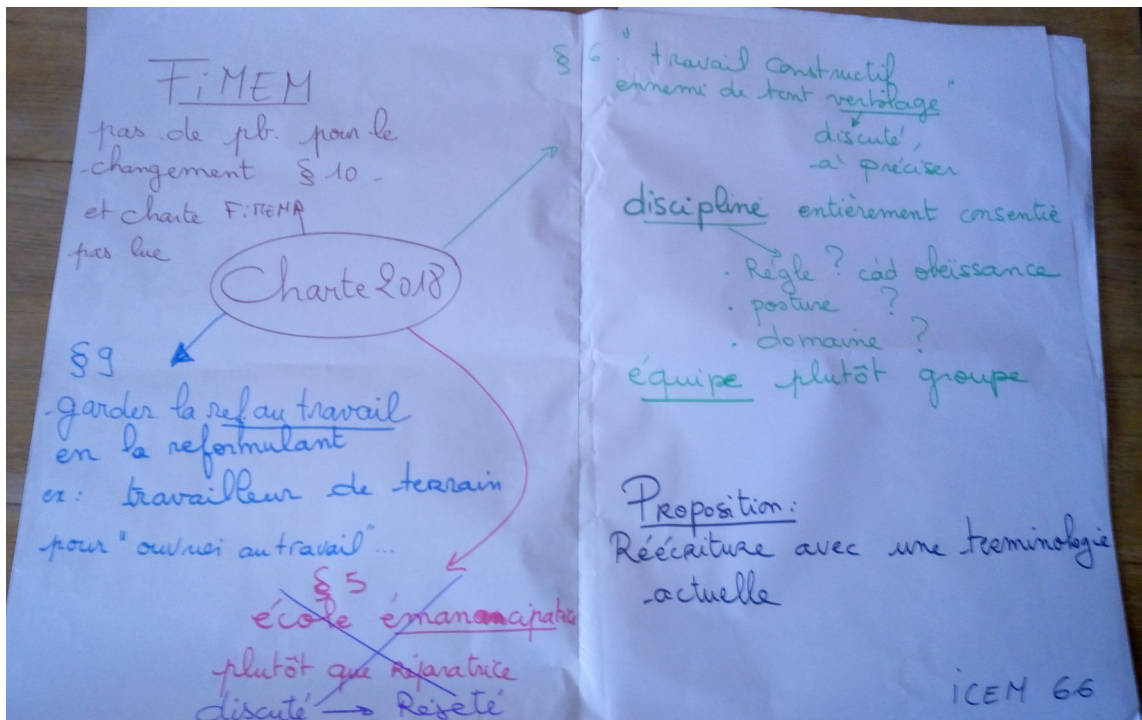 FiMEM
pas de pb. pour le
changement § 10 -
et charte FiMEMA
pas lue
Charte 2018
§ 9
garder la ref au travail
en la reformulant
ex : travailleur de terrain
pour "ouvrier au travail"...
§ 5
école émancipatrice
plutôt que réparatrice
discuté → Rejeté
§ 6 "travail constructif
ennemi de tout verbiage"
discuté,
à préciser
discipline entièrement consentie
. Règle ? càd obeïssance
. posture ?
. domaine ?
équipe plutôt groupe
Proposition :
Réécriture avec une terminologie
actuelle
iCEM 66